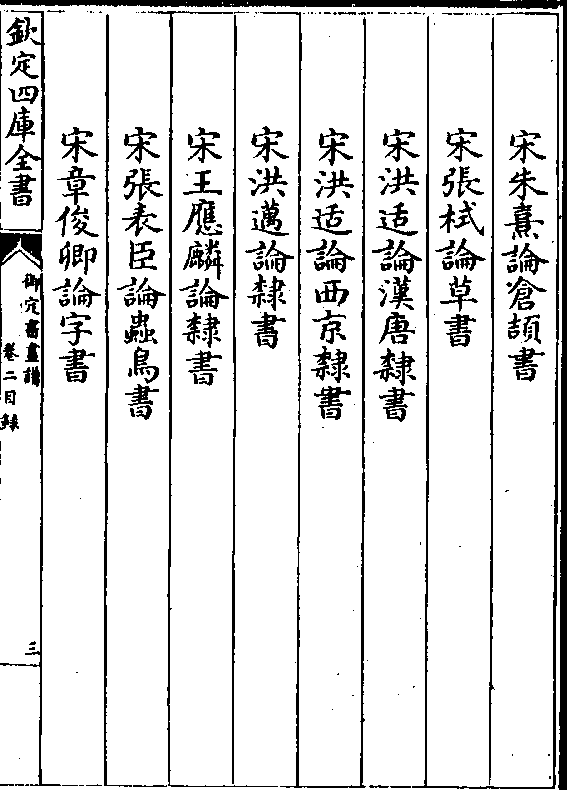 宋朱熹論倉頡書
宋張栻論草書
宋洪适論漢唐隸書
宋洪适論西京隸書
宋洪邁論隸書
宋王應麟論隸書
宋張表臣論蟲鳥書
宋章俊卿論字書
欽定四庫全書
御定書畫譜
卷二目録
三